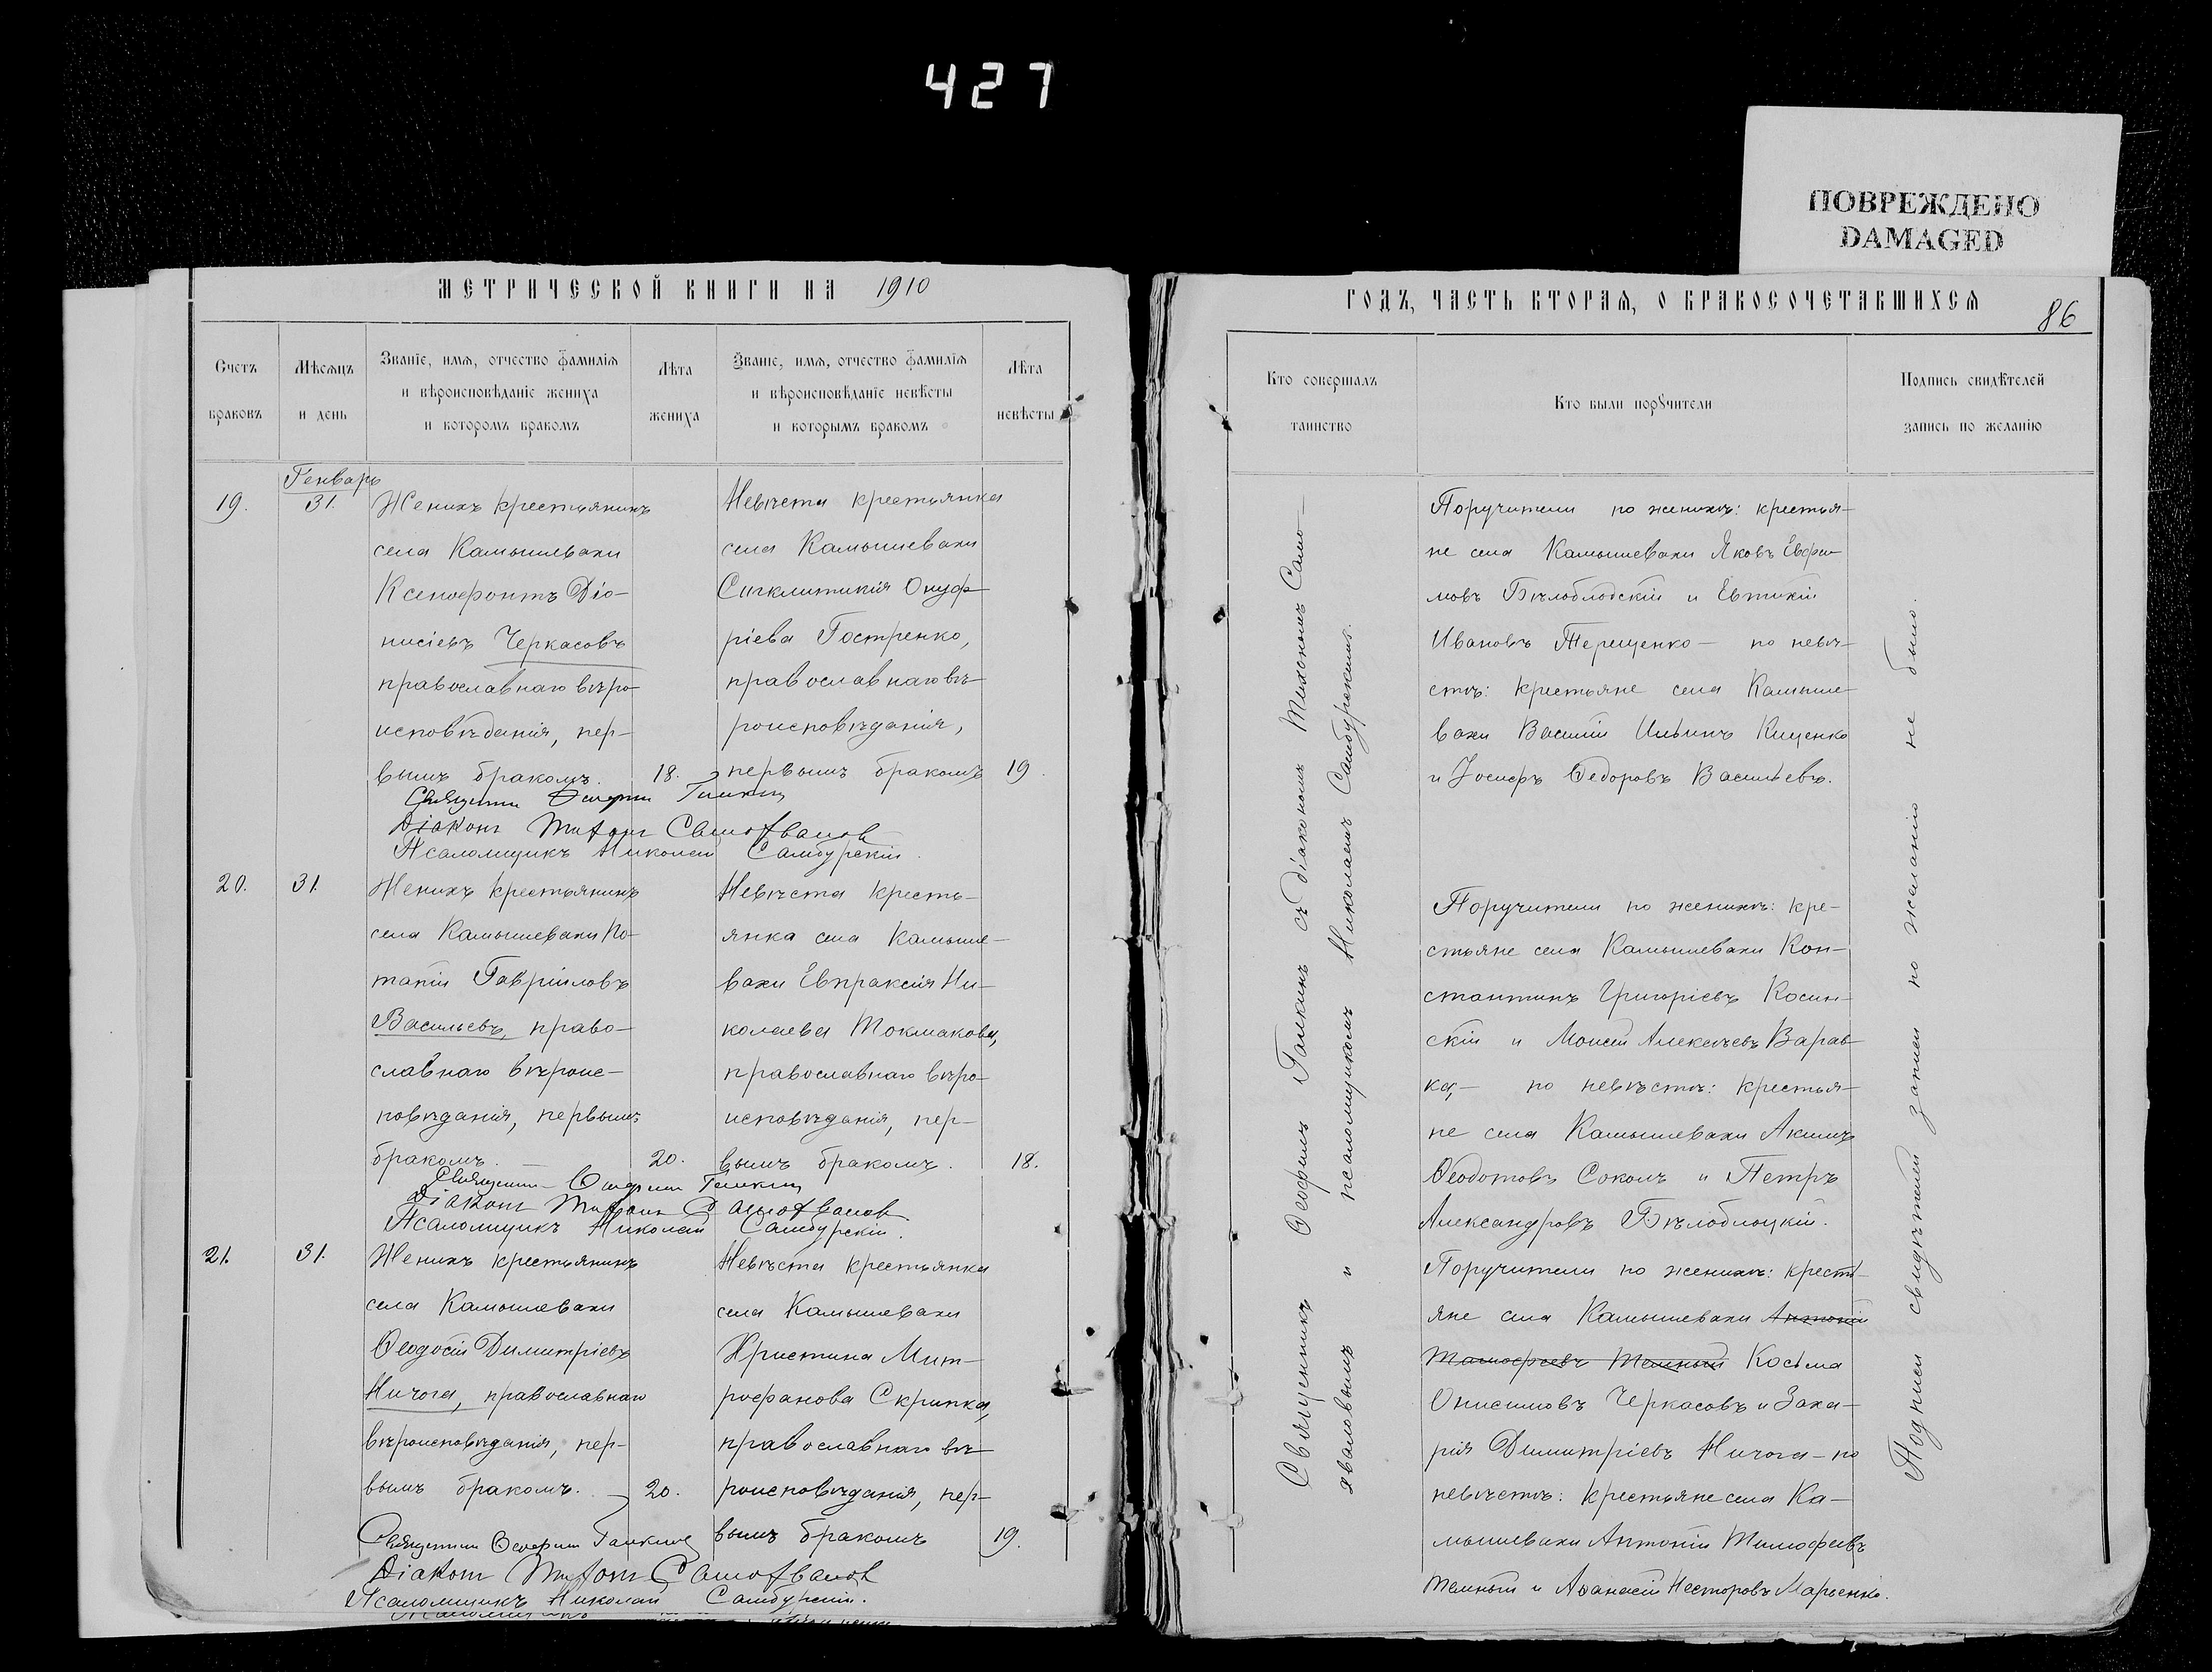 427
ПОВРЕЖДЕНО
DAMAGED
МЕТРИЧЕСКОЙ КНИГИ НА 1910
Счетъ браковъ
Мѣсяцъ и день
Званіе, имя, отчество фамилія
и вѣроисповѣданіе жениха
и которомъ бракомъ
Лѣта жениха
Званіе, имя, отчество фамилія
и вѣроисповѣданіе невѣсты
и которымъ бракомъ
Лѣта невѣсты
Генварь
19.
31.
Женихъ крестьянинъ
села Камышевахи
Ксенофонтъ Діо-
нисіевъ Черкасовъ
православнаго вѣро-
исповѣданія, пер-
вымъ бракомъ.
18.
Невѣста крестьянка
села Камышевахи
Сигклитикія Онуф-
ріева Гостренко,
православнаго вѣ-
роисповѣданія,
первымъ бракомъ
19.
Священникъ Ѳеофилъ Галкинъ
Діаконъ Тихонъ Самохваловъ
Псаломщикъ Николай Самбурскій.
20.
31.
Женихъ крестьянинъ
села Камышевахи По-
тапій Гавріиловъ
Васильевъ, право-
славнаго вѣроис-
повѣданія, первымъ
бракомъ.
20.
Невѣста кресть-
янка села Камыше-
вахи Евпраксія Ни-
колаева Токмакова,
православнаго вѣро-
исповѣданія, пер-
вымъ бракомъ.
18.
Священникъ Ѳеофилъ Галкинъ
Діаконъ Тихонъ Самохваловъ
Псаломщикъ Николай Самбурскій.
21.
31.
Женихъ крестьянинъ
села Камышевахи
Ѳеодосій Димитріевъ
Ничога, православнаго
вѣроисповѣданія, пер-
вымъ бракомъ.
20.
Невѣста крестьянка
села Камышевахи
Христина Мит-
рофанова Скрипка,
православнаго вѣ-
роисповѣданія, пер-
вымъ бракомъ
19.
Священникъ Ѳеофилъ Галкинъ
Діаконъ Тихонъ Самохваловъ
Псаломщикъ Николай Самбурскій.
ГОДЪ, ЧАСТЬ ВТОРАЯ, О БРАКОСОЧЕТАВШИХСЯ
86
Кто совершалъ
таинство
Кто были поручители
Подпись свидѣтелей
запись по желанію
Священникъ Ѳеофилъ Галкинъ съ діакономъ Тихономъ Само-
хваловымъ и псаломщикомъ Николаемъ Самбурскимъ.
Поручители по женихѣ: крестья-
не села Камышевахи Яковъ Евфи-
мовъ Бѣлоблодскій и Евтихій
Ивановъ Терещенко — по невѣ-
стѣ: крестьяне села Камыше-
вахи Василій Ильинъ Кищенко
и Іосифъ Ѳедоровъ Васильевъ.
Поручители по женихѣ: кре-
стьяне села Камышевахи Кон-
стантинъ Григоріевъ Косин-
скій и Моисей Алексѣевъ Варав-
ка, — по невѣстѣ: крестья-
не села Камышевахи Акимъ
Ѳеодотовъ Соколъ и Петръ
Александровъ Бѣлоблоцкій.
Поручители по женихѣ: кресть-
яне села Камышевахи Антоній
Тимофеевъ Темный Косьма
Онисимовъ Черкасовъ и Заха-
рія Димитріевъ Ничога — по
невѣстѣ: крестьяне села Ка-
мышевахи Антоній Тимофеевъ
Темный и Аѳанасій Несторовъ Марьенко.
Подписи свидѣтелей записи по желанію не было.